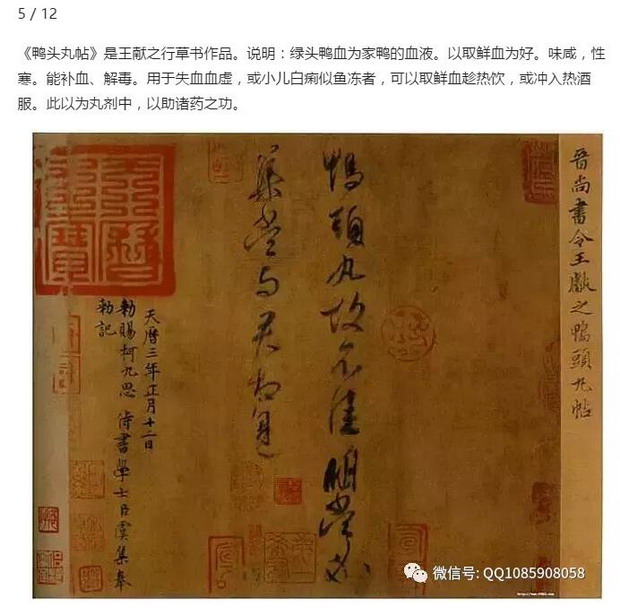 5 / 12
《鸭头丸帖》是王献之行草书作品。说明：绿头鸭血为家鸭的血液。以取鲜血为好。味咸，性
寒。能补血、解毒。用于失血血虚，或小儿白痢似鱼冻者，可以取鲜血趁热饮，或冲入热酒
服。此以为丸剂中，以助诸药之功。
晋尚書令王獻之鴨頭丸帖
鴨頭丸故不佳明當必
集當與君相見
天曆三年正月十二日
勑賜柯九思侍書學士臣虞集奉
勑記
天曆之寶
微信号: QQ1085908058